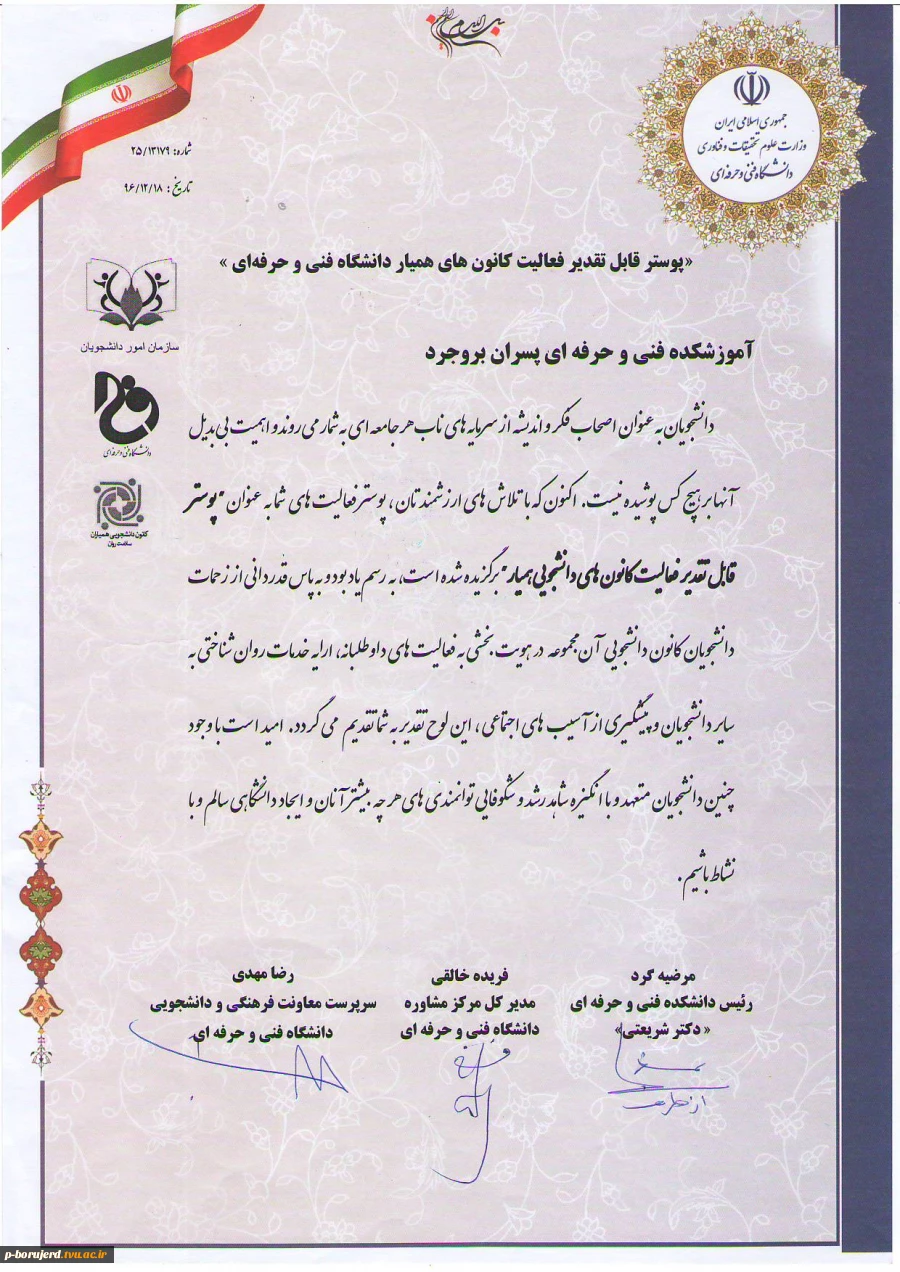 جمهوری اسلامی ایران
وزارت علوم تحقیقات و فناوری
دانشگاه فنی و حرفه ای
شماره: ۲۵/۱۳۱۷۹
تاریخ: ۹۶/۱۲/۱۸
«پوستر قابل تقدیر فعالیت کانون های همیار دانشگاه فنی و حرفه‌ای »
سازمان امور دانشجویان
دانشگاه فنی و حرفه‌ای
کانون دانشجویی همیاران
سلامت روان
آموزشکده فنی و حرفه ای پسران بروجرد
دانشجویان به عنوان اصحاب فکر و اندیشه از سرمایه های ناب هر جامعه ای به شمار می روند و اهمیت بی بدیل
آنها بر هیچ کس پوشیده نیست. اکنون که با تلاش های ارزشمندتان، پوستر فعالیت های شما به عنوان "پوستر
قابل تقدیر فعالیت کانون های دانشجویی همیار" برگزیده شده است، به رسم یادبود و به پاس قدردانی از زحمات
دانشجویان کانون دانشجویی آن مجموعه در هویت بخشی به فعالیت های داوطلبانه، ارایه خدمات روان شناختی به
سایر دانشجویان و پیشگیری از آسیب های اجتماعی، این لوح تقدیر به شما تقدیم می گردد. امید است با وجود
چنین دانشجویان متعهد و با انگیزه شاهد رشد و شکوفایی توانمندی های هر چه بیشتر آنان و ایجاد دانشگاهی سالم و با
نشاط باشیم.
مرضیه گرد
رئیس دانشکده فنی و حرفه ای
« دکتر شریعتی»
فریده خالقی
مدیر کل مرکز مشاوره
دانشگاه فنی و حرفه ای
رضا مهدی
سرپرست معاونت فرهنگی و دانشجویی
دانشگاه فنی و حرفه ای
p-borujerd.tvu.ac.ir